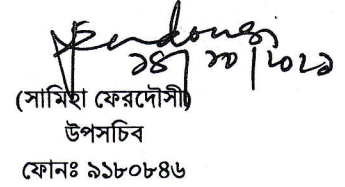 ১৪/১০/২০২১
(সামিহা ফেরদৌসী)
উপসচিব
ফোনঃ ৯১৮০৮৪৬